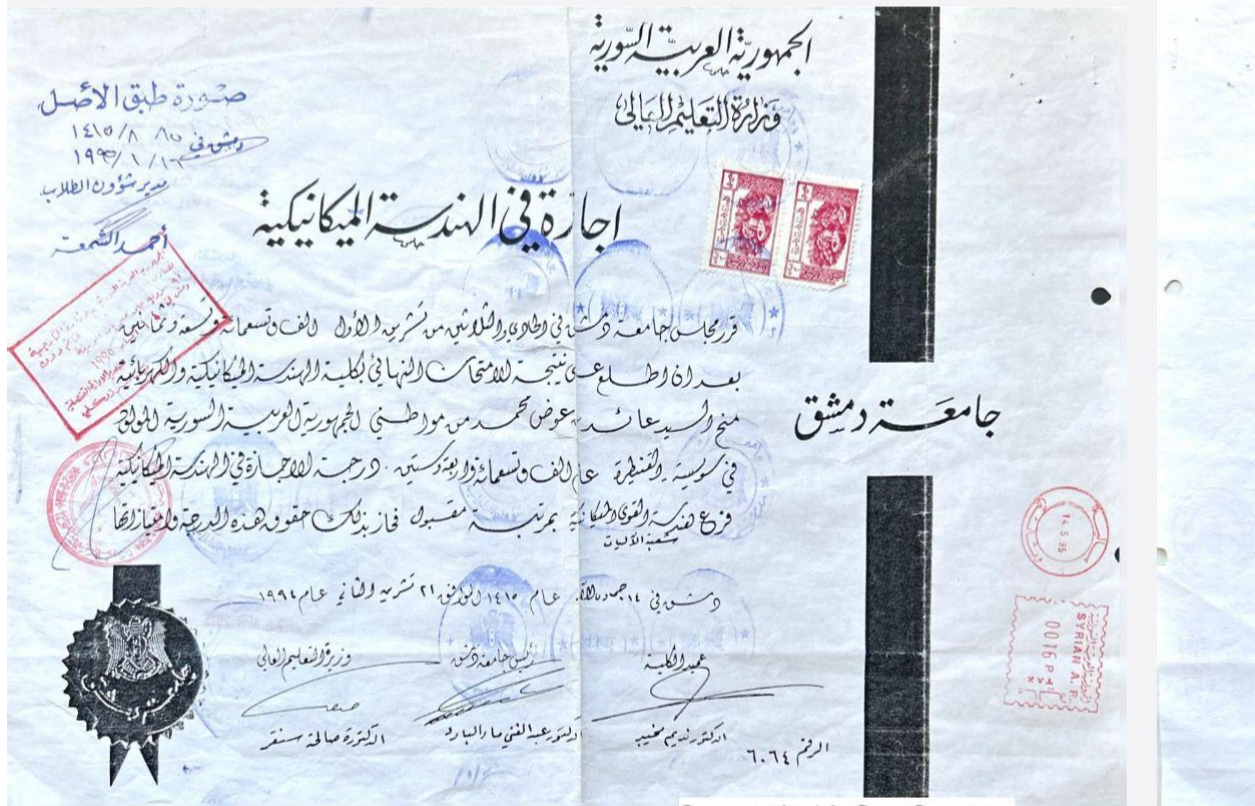 الجمهورية العربية السورية
وزارة التعليم العالي
صورة طبق الأصل
دمشق في ١٥ / ٨ / ١٤١٥
١٦ / ١ / ١٩٩٥
مدير شؤون الطلاب
أحمد الشمعة
اجازة في الهندسة الميكانيكية
قرر مجلس جامعة دمشق في الحادي والثلاثين من تشرين الأول الف وتسعمائة وتسعة وثمانين
بعد ان اطلع على نتيجة الامتحان النهائي لكلية الهندسة الميكانيكية والكهربائية
منح السيد عائد بن عوض محمد من مواطني الجمهورية العربية السورية المولود
في سويسة القنيطرة عام الف وتسعمائة واربعة وستين درجة الاجازة في الهندسة الميكانيكية
فرع هندسة القوى الميكانيكية بمرتبة مقبول فحاز بذلك حقوق هذه الدرجة وامتيازاتها
شعبة الآليات
جامعة دمشق
دمشق في ١٤١٥ الموافق ٢١ تشرين الثاني عام ١٩٩٤
عميد الكلية
رئيس جامعة دمشق
وزيرة التعليم العالي
الدكتور نديم مخيبر
الدكتور عبد الغني ماء البارد
الدكتورة صالحة سنقر
الرقم ٦٠٦٤
14.5.95
SYRIAN A. R.
0016 P